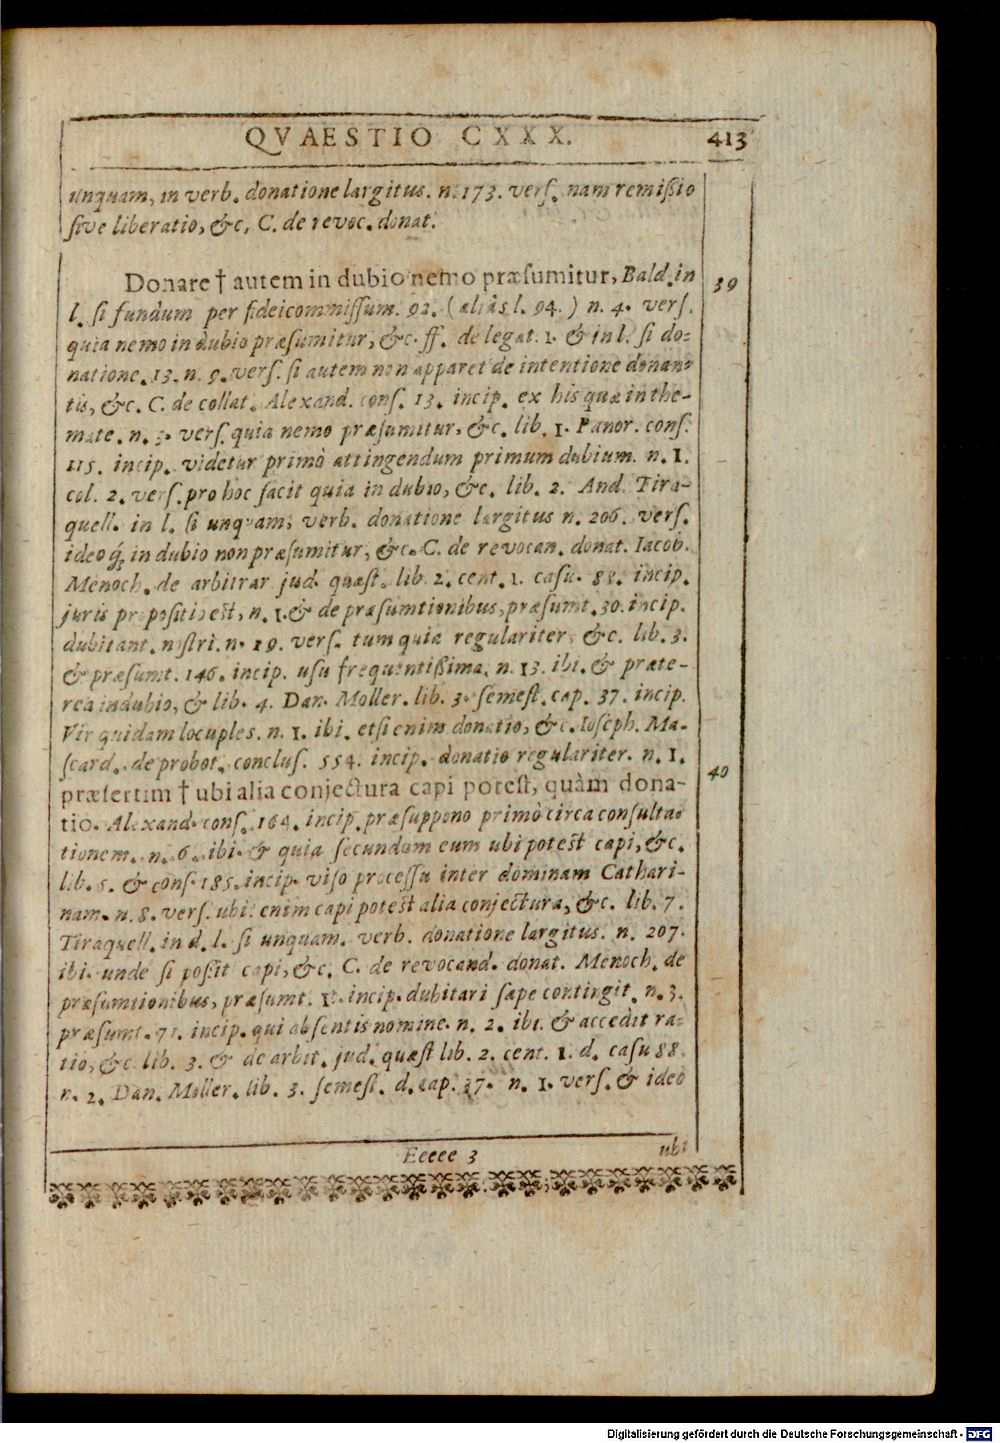 QVAESTIO CXXX. 413
unquam, in verb. donatione largitus. n. 173. verſ. nam remiſsio
ſive liberatio, &c, C. de revoc. donat.
Donare † autem in dubio nemo præſumitur, Bald. in 39
l. ſi fundum per fideicommiſſum. 92. (aliàs l. 94.) n. 4. verſ.
quia nemo in dubio præſumitur, &c. ff. de legat. 1. & in l. ſi do-
natione. 13. n. 9. verſ. ſi autem non apparet de intentione donan-
tis, &c. C. de collat. Alexand. conſ. 13. incip. ex his quæ in the-
mate. n. 3. verſ. quia nemo præſumitur, &c. lib. 1. Panor. conſ.
115. incip. videtur primò attingendum primum dubium. n. 1.
col. 2. verſ. pro hoc facit quia in dubio, &c. lib. 2. And. Tira-
quell. in l. ſi unquam, verb. donatione largitus n. 206. verſ.
ideoq́; in dubio non præſumitur, &c. C. de revocan. donat. Iacob.
Menoch. de arbitrar jud. quæſt. lib. 2. cent. 1. caſu. 88. incip.
juris propoſiti est, n. 1. & de præſumtionibus, præſumt. 30. incip.
dubitant. noſtri. n. 19. verſ. tum quia regulariter, &c. lib. 3.
& præſumt. 146. incip. uſu frequentiſsima. n. 13. ibi. & præte-
rea in dubio, & lib. 4. Dan. Moller. lib. 3. ſemeſt. cap. 37. incip.
Vir quidam locuples. n. 1. ibi. etſi enim donatio, &c. Ioſeph. Ma-
ſcard. de probot. concluſ. 554. incip. donatio regulariter. n. 1.
præſertim † ubi alia conjectura capi poteſt, quàm dona- 40
tio. Alexand. conſ. 164. incip. præſuppono primò circa conſulta-
tionem. n. 6. ibi. & quia ſecundum eum ubi potest capi, &c.
lib. 5. & conſ. 185. incip. viſo proceſſu inter dominam Cathari-
nam. n. 8. verſ. ubi enim capi potest alia conjectura, &c. lib. 7.
Tiraquell. in d. l. ſi unquam. verb. donatione largitus. n. 207.
ibi. unde ſi poſsit capi, &c. C. de revocand. donat. Menoch. de
præſumtionibus, præſumt. incip. dubitari ſæpe contingit. n. 3.
præſumt. 71. incip. qui abſentis nomine. n. 2. ibi. & accedit ra-
tio, &c. lib. 3. & de arbit. jud. quæſt lib. 2. cent. 1. d. caſu 88.
n. 2. Dan. Moller. lib. 3. ſemeſt. d. cap. 37. n. 1. verſ. & ideo
Eeeee 3 ubi
Digitalisierung gefördert durch die Deutsche Forschungsgemeinschaft - DFG